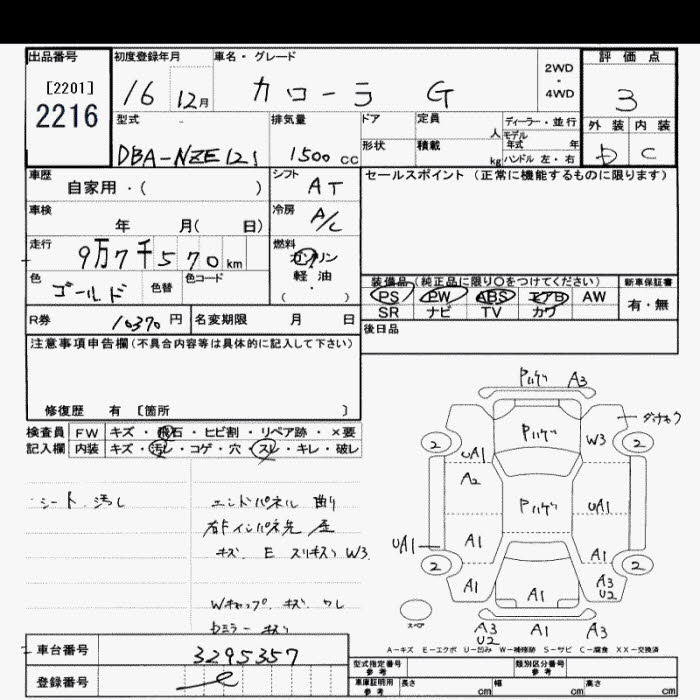 出品番号 初度登録年月 車名・グレード 2WD・4WD 評価点
[2201] 2216 16 12月 カローラ G 3
型式 排気量 ドア 定員 人 ディーラー・並行 モデル年式 年 外装 内装
DBA-NZE121 1500 CC 形状 積載 kg ハンドル 左・右 D C
車歴 自家用・( ) シフト AT セールスポイント(正常に機能するものに限ります)
車検 年 月( 日) 冷房 A/C
走行 9万7千570 km 燃料 ガソリン・軽油・( )
色 ゴールド 色替 色コード
装備品(純正品に限り〇をつけてください) 新車保証書
PS PW ABS エアB AW 有・無
SR ナビ TV カワ
R券 10370 円 名変期限 月 日 後日品
注意事項申告欄(不具合内容等は具体的に記入して下さい)
修復歴 有 [箇所 ]
検査員 FW キズ・飛石・ヒビ割・リペア跡・×要
記入欄 内装 キズ・汚レ・コゲ・穴・スレ・キレ・破レ
シート 汚レ
エンドパネル 曲り
右Fインパネ先 歪
キズ E スリキズ W3
Wキャップ キズ ワレ
ミラー キズ
Pハゲ A3
Pハゲ
2 UA1 W3 2
A2
Pハゲ UA1
UA1 A1 A1
2 A1 A1 A3 U2 2
スペア A3 U2 A1 A3
A-キズ E-エクボ U-凹み W-補修跡 S-サビ C-腐食 XX-交換済
車台番号 3295357
登録番号
型式指定番号 参考 類別区分番号 参考
車庫証明用 参考 長さ cm 幅 cm 高さ cm